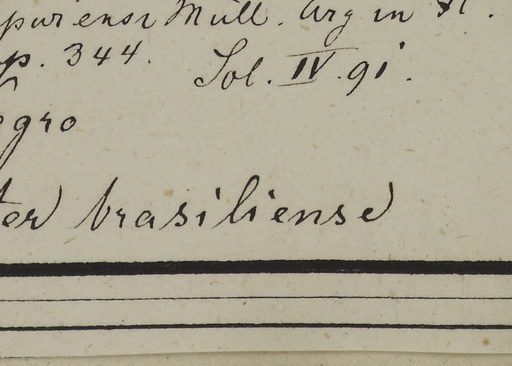 purensi Müll. Arg in Fl.
p. 344. Sol. IV. 91.
egro
ter brasiliense